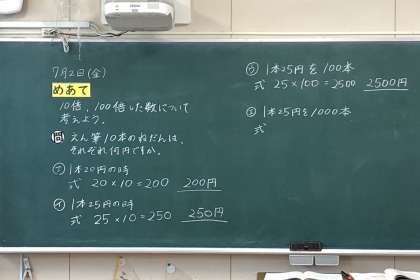 7月2日(金)
めあて
10倍、100倍した数について
考えよう。
問 えん筆10本のねだんは、
それぞれ何円ですか。
ア 1本20円の時
式 20×10=200 200円
イ 1本25円の時
式 25×10=250 250円
ウ 1本25円を100本
式 25×100=2500 2500円
エ 1本25円を1000本
式